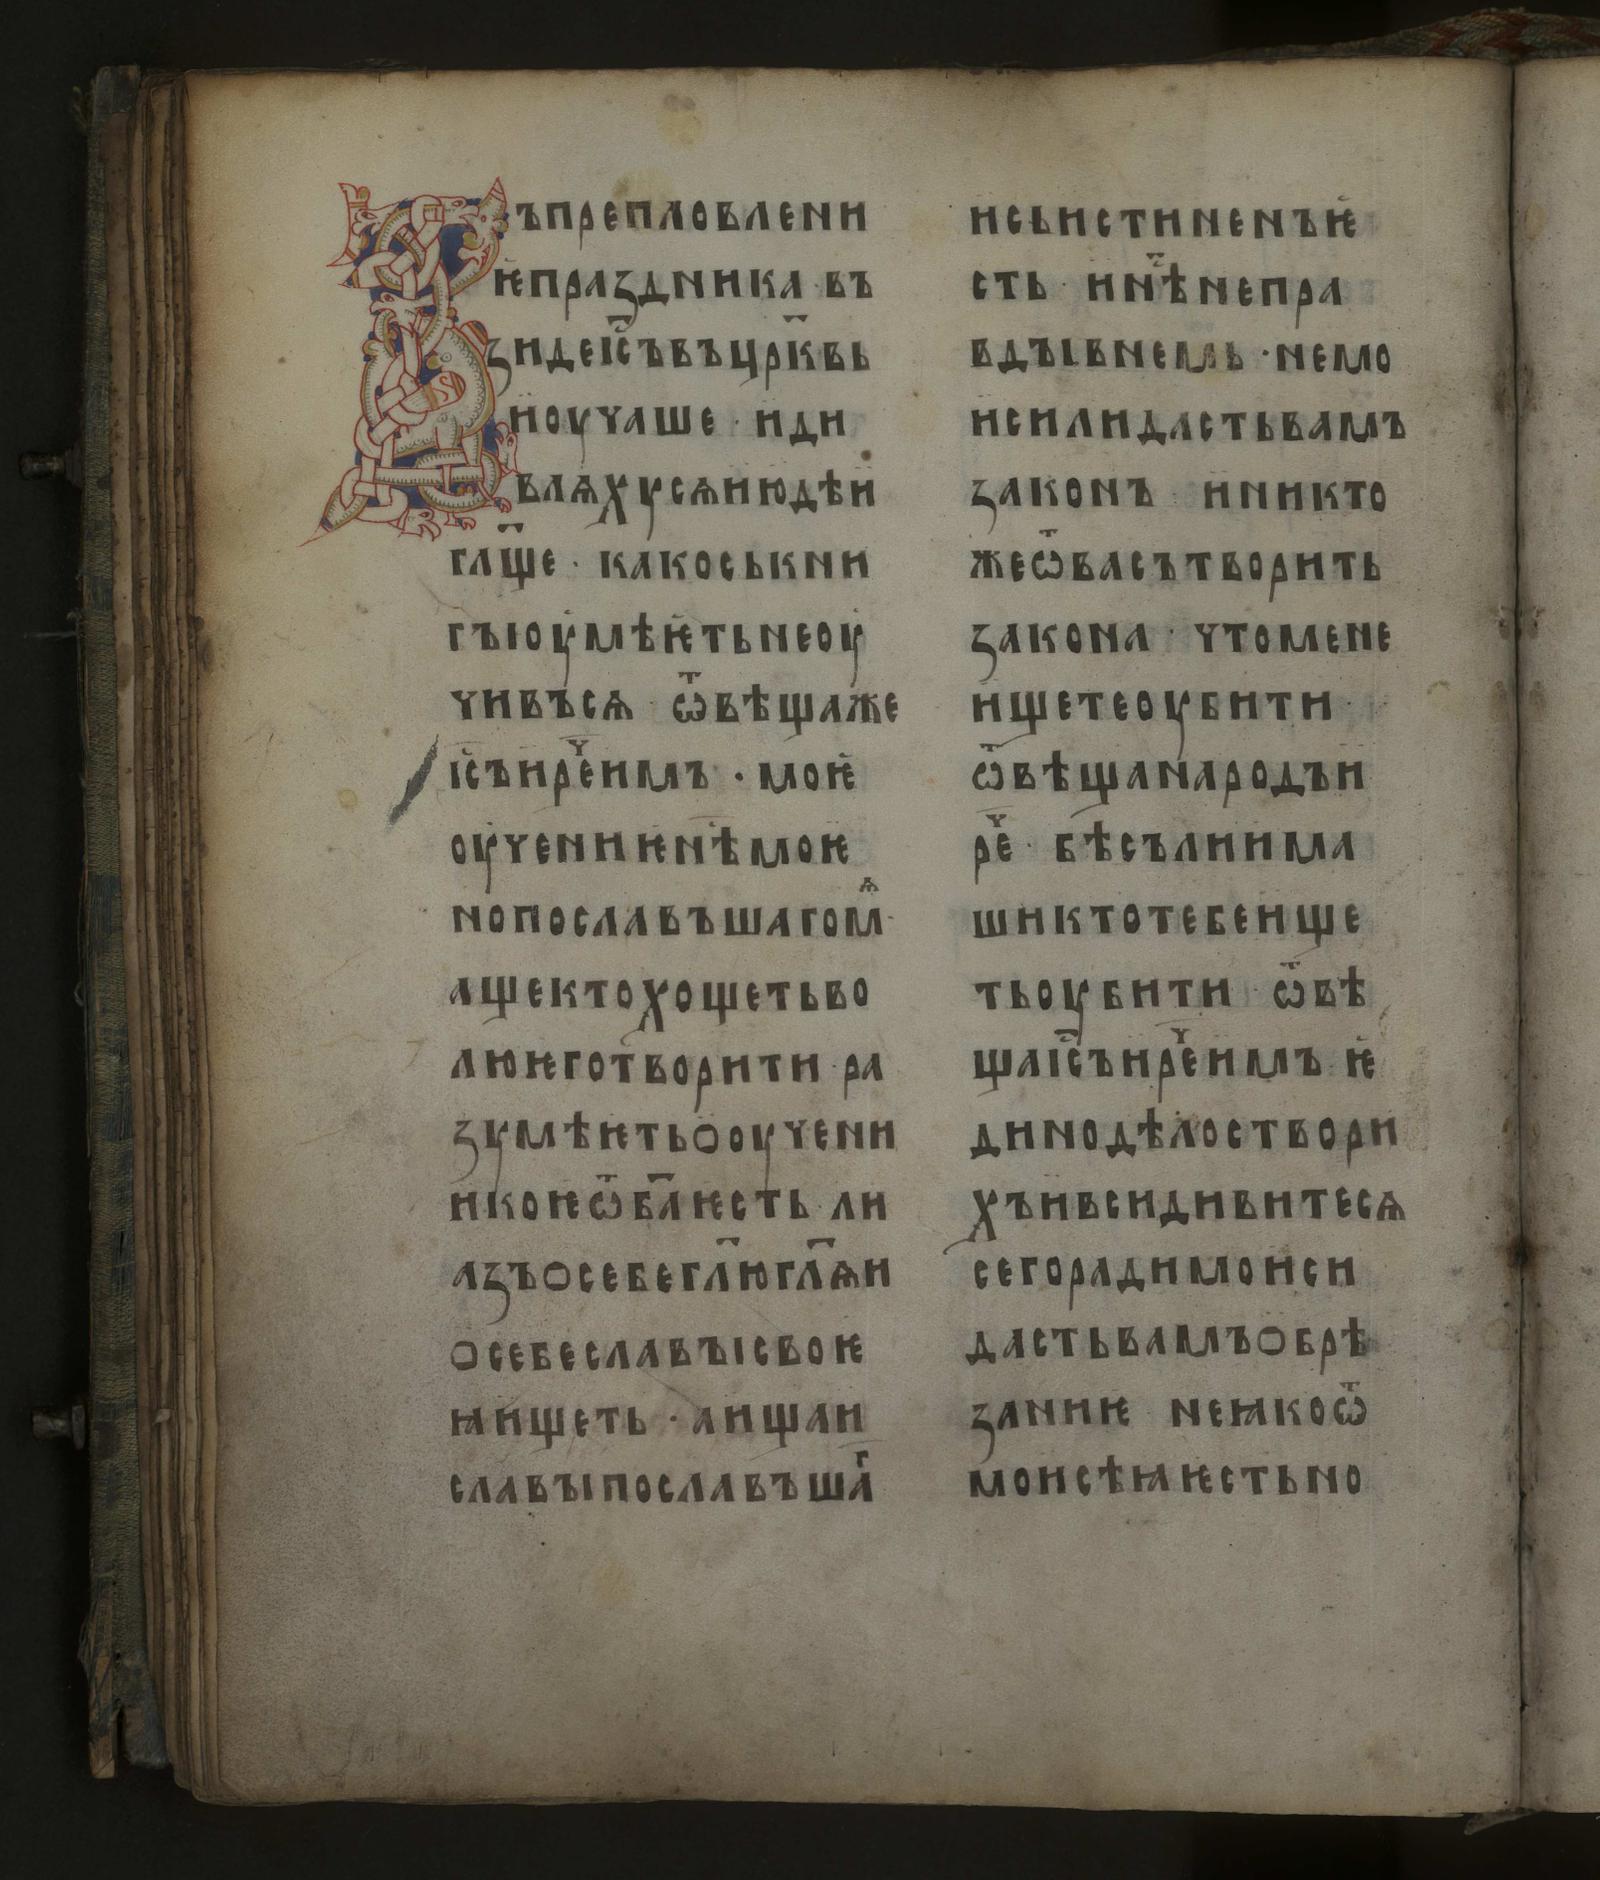 Въпрепловлени
ѥпраздника въ
зидеіс҃ъвъцрк҃вь
иоучаше · иди
влѧхусѧиюдѣи
глщ҃е · какоськни
гъіоумѣѥтьнеоу
чивъсѧ ѿвѣщаже
іс҃ъирече҃имъ · моѥ
оучениѥнѣ҃моѥ
нопославъшагомѧ·
ащектохощетьво
люѥготворити ра
зумѣѥтьооучени
икоѥѿба҃ѥсть ли
азъосебегл҃югл҃ѧи
осебеславъісвоѥ
ꙗищеть · аищаи
славъіпославъшаг
исьистиненъѥ
сть инѣ҃сненепра
вдъівнемь · немо
исилидастьвамъ
законъ иникто
жеѿвасътворить
закона · чтомене
ищетеоубити
ѿвѣщанародъи
реч҃е · бѣсълиима
шиктотебеище
тьоубити ѿвѣ
щаіс҃ъиреч҃еимъ ѥ
динодѣлоствори
хъивсидивитесѧ
сегорадимоиси
дастьвамъобрѣ
заниѥ неꙗкоѿ
моисѣꙗѥстьно